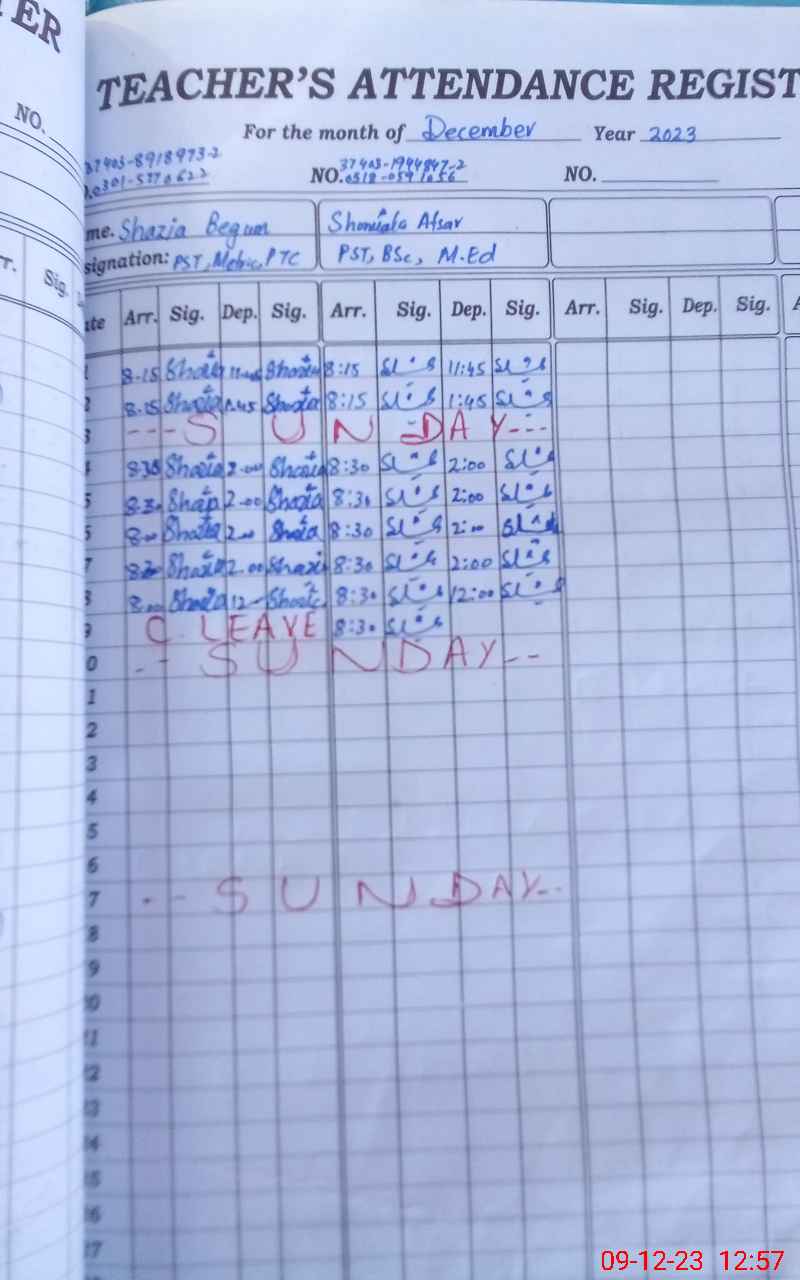 TER
NO.
TEACHER'S ATTENDANCE REGIST
For the month of December Year 2023
37403-8918973-2 37403-1944847-2
0301-5770622 NO. 0312-0591056 NO.
me. Shazia Begum Shomaila Afsar
signation: PST, Metric, PTC PST, BSc, M.Ed
r. Sig. te Arr. Sig. Dep. Sig. Arr. Sig. Dep. Sig. Arr. Sig. Dep. Sig. A
1 8.15 Shazia Shazia 8:15 11:45
2 8.15 Shazia 1.45 Shazia 8:15 1:45
3 --- S U N D A Y ---
4 8.30 Shazia 2.00 Shazia 8:30 2:00
5 8.30 Shazia 2.00 Shazia 8:30 2:00
6 Shazia 2.00 Shazia 8:30 2:00
7 8.30 Shazia 2.00 Shazia 8:30 2:00
8 Shazia 12 Shazia 8:30 12:00
9 C. LEAVE 8:30
0 -- S U N D A Y --
1
2
3
4
5
6
7 -- S U N D A Y --
8
9
0
1
2
3
4
5
6
7
09-12-23 12:57